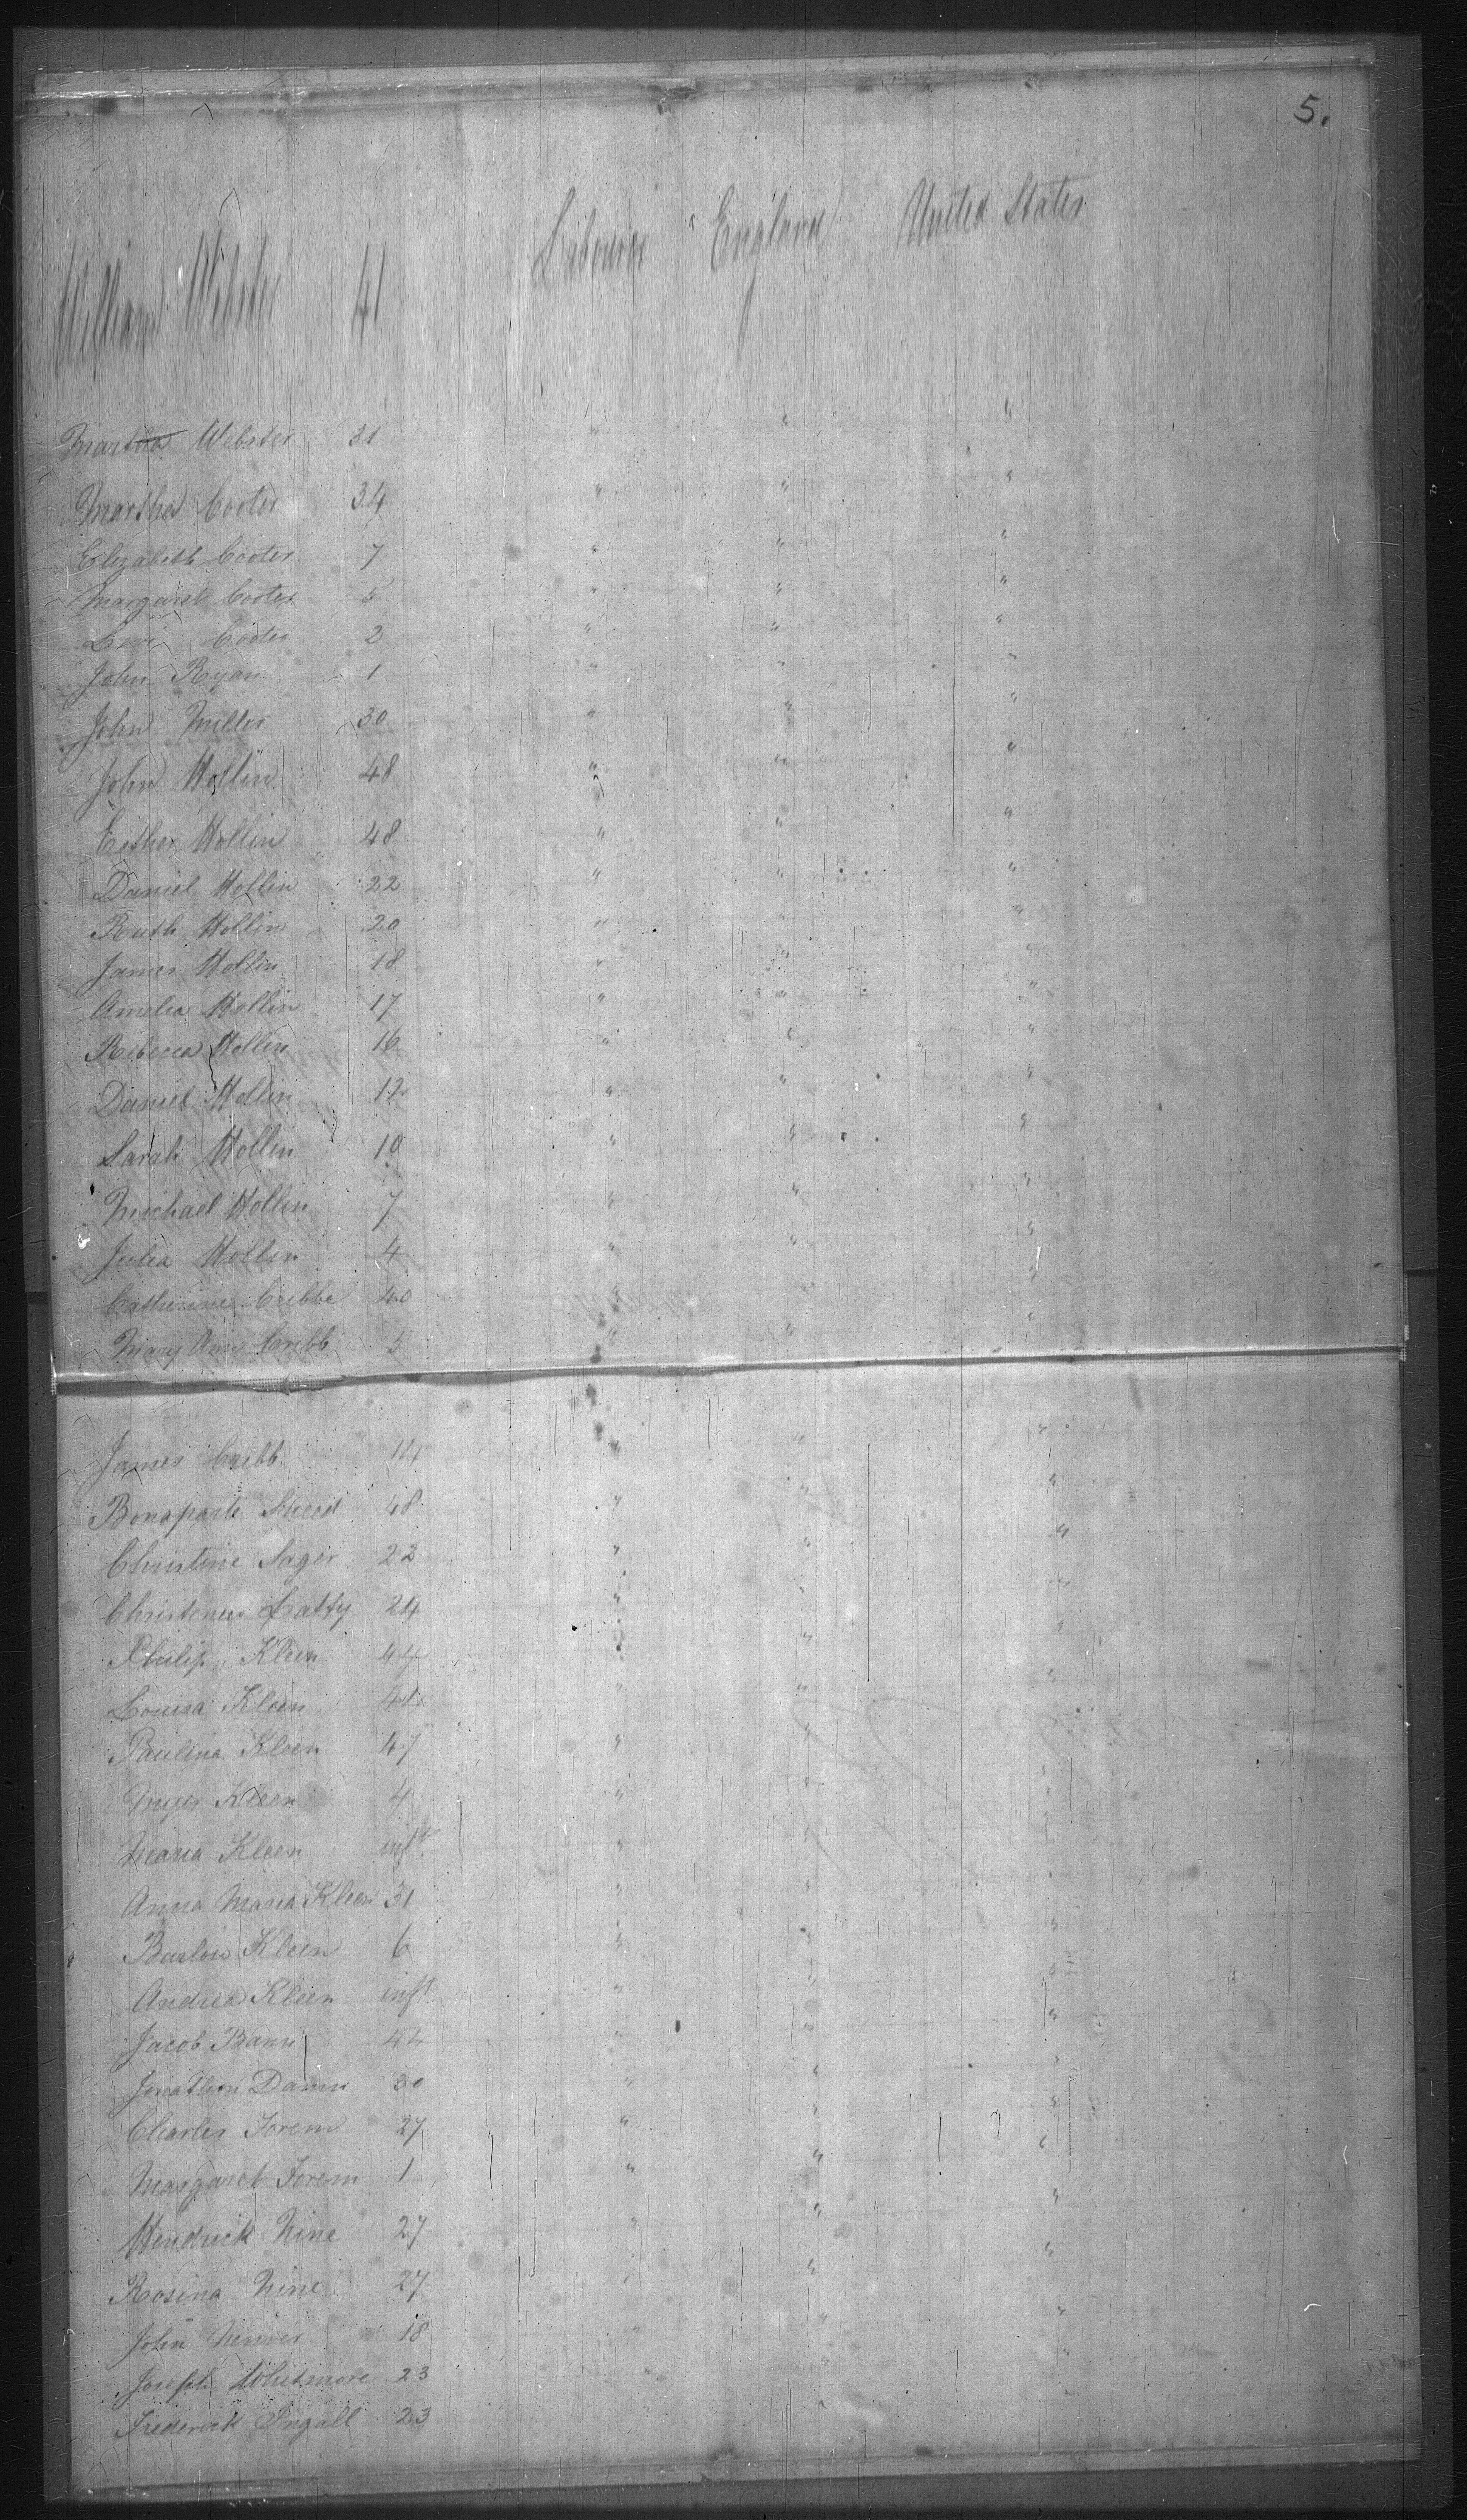 5.
William Webster 41 Labourer England United States
Martha Webster 31 " " "
Martha Cooter 34 " " "
Elizabeth Cooter 7 " " "
Margaret Cooter 5 " " "
Levi Cooter 2 " " "
John Ryan 1 " " "
John Miller 30 " " "
John Hollin 48 " " "
Esther Hollin 48 " " "
Daniel Hollin 22 " " "
Ruth Hollin 20 " " "
James Hollin 18 " " "
Amelia Hollin 17 " " "
Rebecca Hollin 16 " " "
Daniel Hollin 12 " " "
Sarah Hollin 10 " " "
Michael Hollin 7 " " "
Julia Hollin 4 " " "
Catherine Cribbe 40 " "
Mary Ann Cribb " " "
James Cribb 14 " " "
Bonaparte 48 " " "
Christine Sager 22 " " "
Latty 24 " " "
Philip Kleen 44 " " "
Louisa Kleen " " "
Paulina Kleen 47 " " "
Kleen 4 " " "
Maria Kleen inft " " "
Anna Maria Kleen 31 " " "
Kleen 6 " " "
Andrea Kleen inft " " "
Jacob 44 " " "
Jonathon Damm 30 " " "
Charles Forem 27 " " "
Margaret Forem 1 " " "
Hendrick Nine 27 " " "
Rosina Nine 27 " " "
John 18 " " "
Joseph Whitmore 23 " " "
Frederick Ingall 23 " "